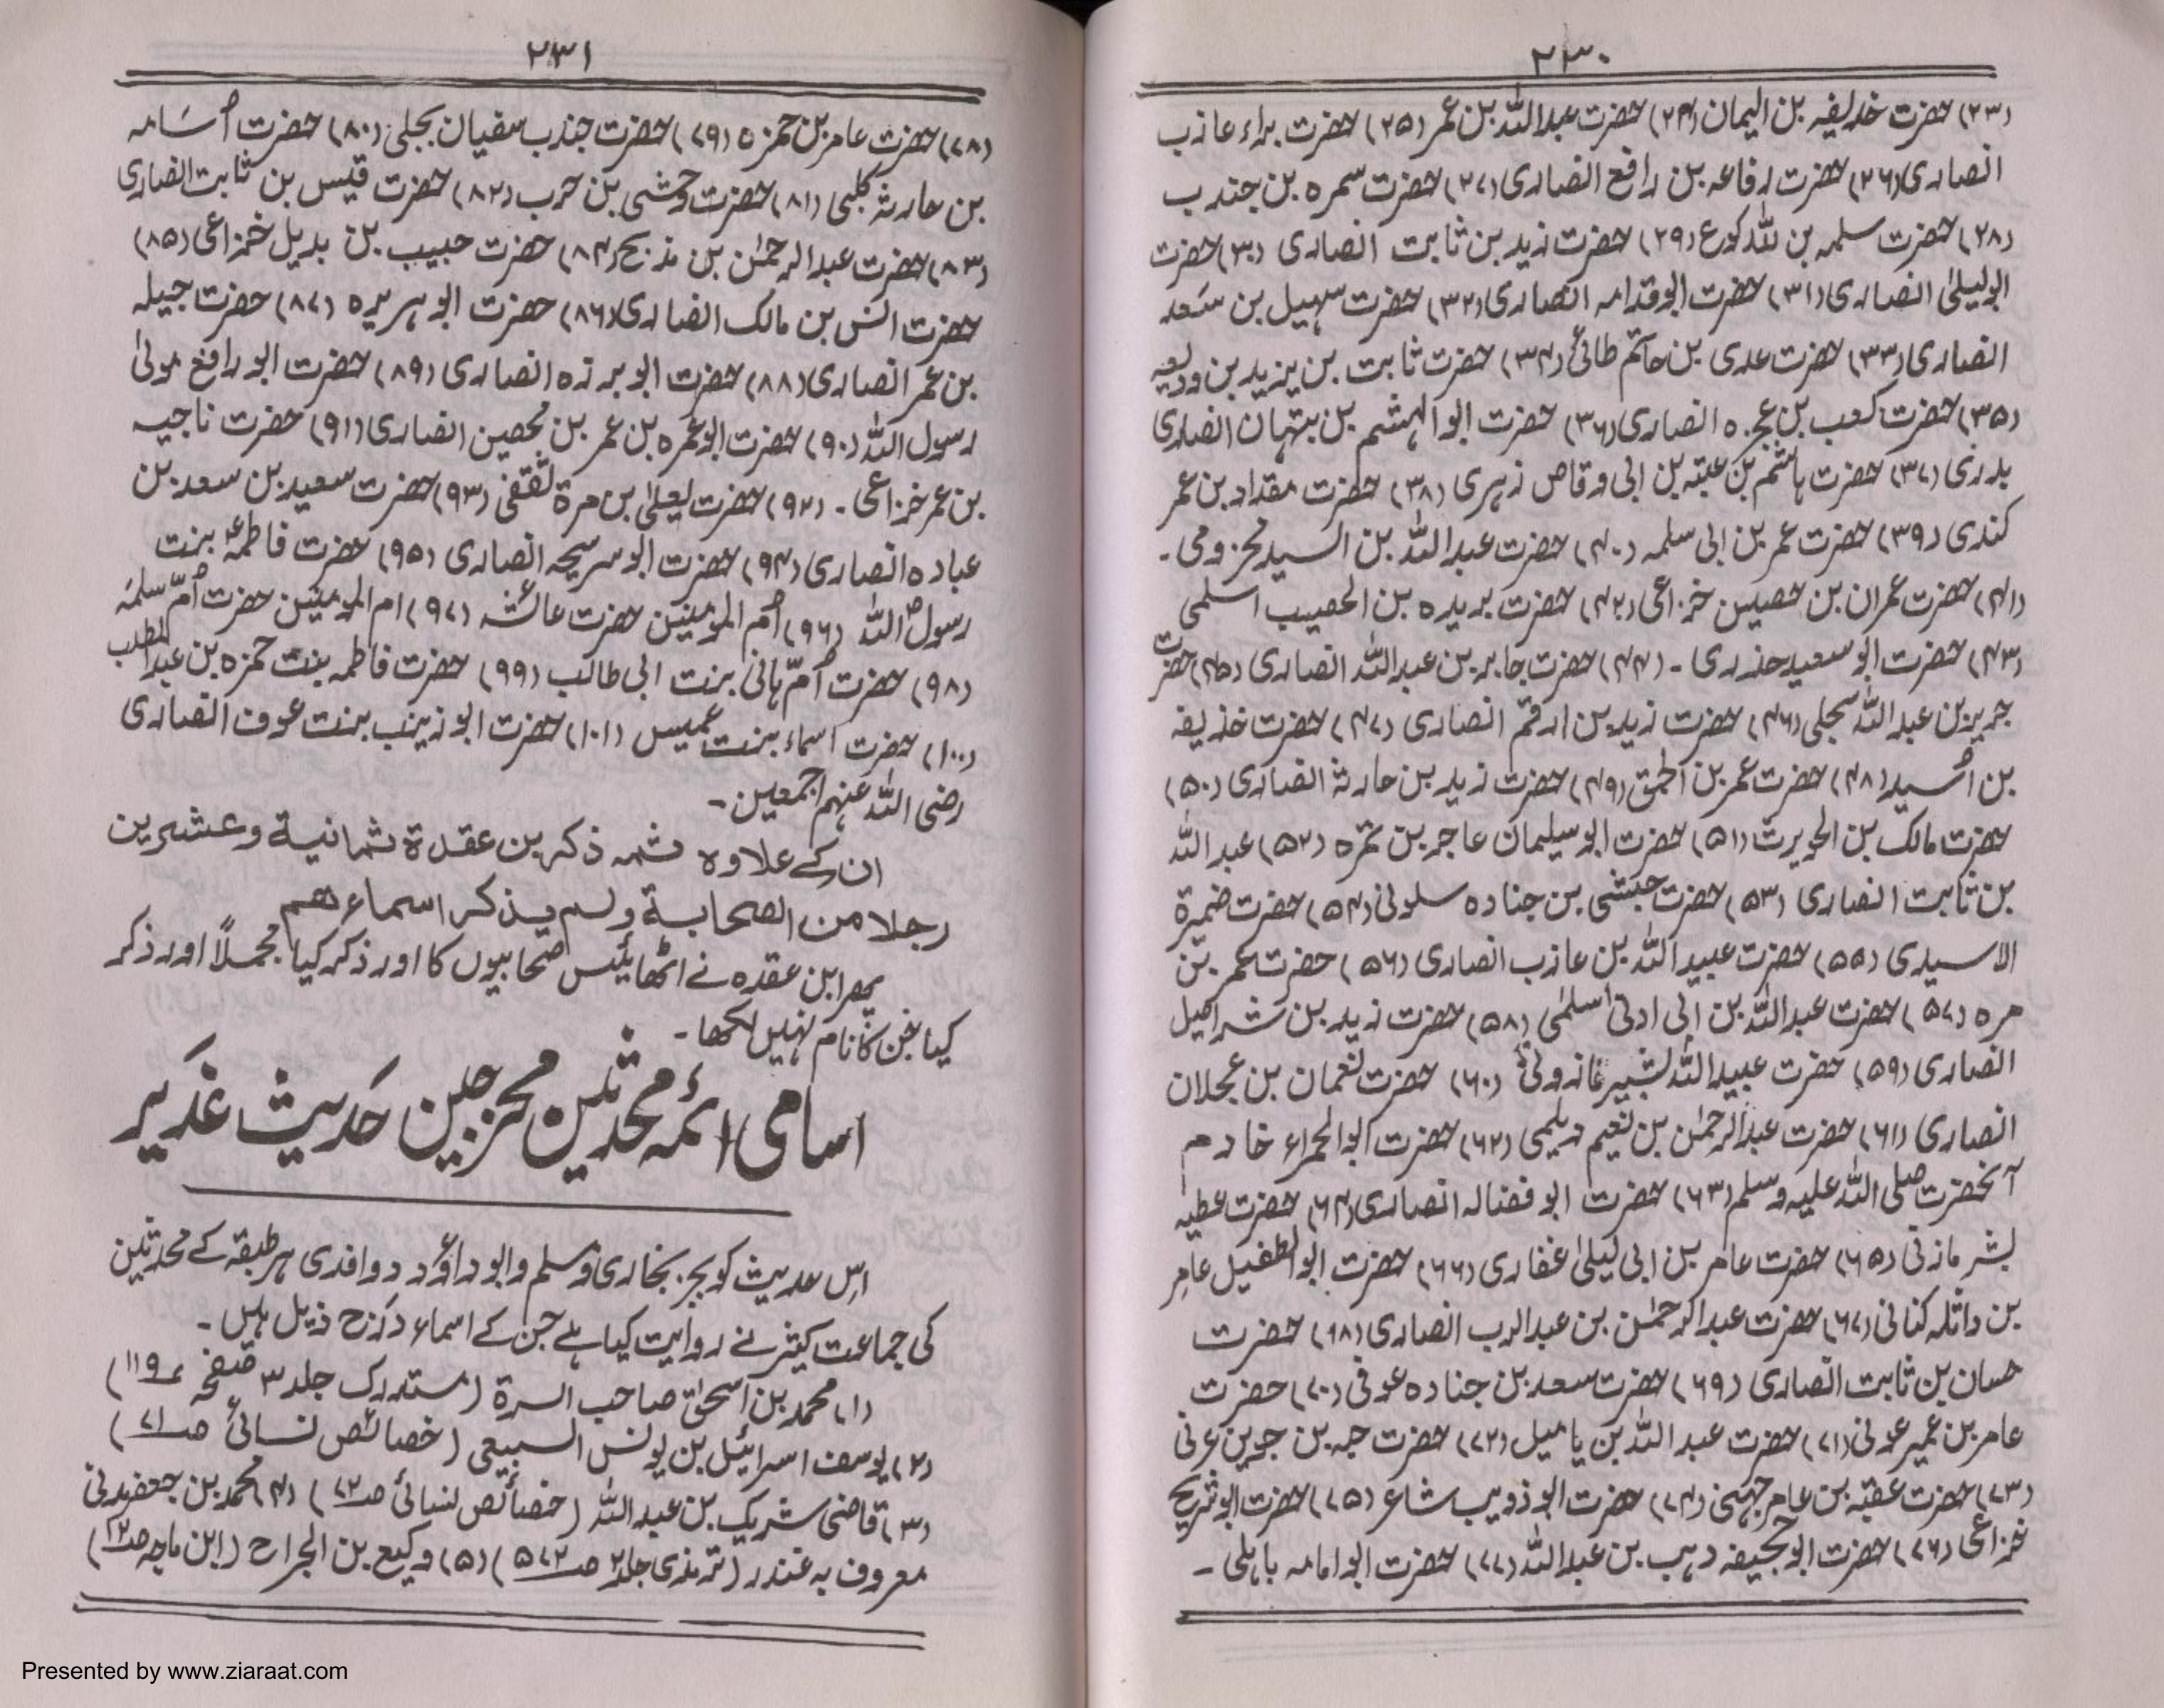 ۲۳۰
(۲۳) حضرت خذیفہ بن الیمان (۲۴) حضرت عبداللہ بن عمر (۲۵) حضرت براء عازب
انصاری (۲۶) حضرت رفاعہ بن رافع انصاری (۲۷) حضرت سمرہ بن جندب
(۲۸) حضرت سلمہ بن (۲۹) حضرت زید بن ثابت انصاری (۳۰) حضرت
ابو لیلیٰ انصاری (۳۱) حضرت ابو قدامہ انصاری (۳۲) حضرت سہیل بن سَعد
انصاری (۳۳) حضرت عدی بن حاتم طائی (۳۴) حضرت ثابت بن یزید بن ودیعہ
(۳۵) حضرت کعب بن عجرہ انصاری (۳۶) حضرت ابو الہشم بن تیہان انصاری
بدری (۳۷) حضرت ہاشم بن عتبہ بن ابی وقاص زہری (۳۸) حضرت مقداد بن عمر
کندی (۳۹) حضرت عمر بن ابی سلمہ (۴۰) حضرت عبداللہ بن السید مخزومی ۔
(۴۱) حضرت عمران بن حصین خزاعی (۴۲) حضرت بریدہ بن الحصیب اسلمی
(۴۳) حضرت ابو سعید خدری ۔ (۴۴) حضرت جابر بن عبداللہ انصاری (۴۵) حضرت
جریر بن عبداللہ بجلی (۴۶) حضرت زید بن ارقم انصاری (۴۷) حضرت خذیفہ
بن اُسید (۴۸) حضرت عمر بن الحمق (۴۹) حضرت زید بن حارثہ انصاری (۵۰)
حضرت مالک بن الحویرث (۵۱) حضرت ابو سلیمان عاجر بن ثمرہ (۵۲) عبداللہ
بن ثابت انصاری (۵۳) حضرت حبشی بن جنادہ سلونی (۵۴) حضرت ضمیرة
الاسیدی (۵۵) حضرت عبید اللہ بن عازب انصاری (۵۶) حضرت عمر بن
مرہ (۵۷) حضرت عبداللہ بن ابی ادنیٰ اسلمی (۵۸) حضرت زید بن شراحیل
انصاری (۵۹) حضرت عبیداللہ بشیر (۶۰) حضرت نعمان بن عجلان
انصاری (۶۱) حضرت عبدالرحمٰن بن نعیم دیلمی (۶۲) حضرت ابو الحمراء خادم
آنحضرت صلی اللہ علیہ وسلم (۶۳) حضرت ابو فضالہ انصاری (۶۴) حضرت عطیہ
بشر مازنی (۶۵) حضرت عامر بن ابی لیلیٰ غفاری (۶۶) حضرت ابو الطفیل عامر
بن واثلہ کنانی (۶۷) حضرت عبدالرحمٰن بن عبد الرب انصاری (۶۸) حضرت
حسان بن ثابت انصاری (۶۹) حضرت سعد بن جنادہ عوفی (۷۰) حضرت
عامر بن عمیر عونی (۷۱) حضرت عبد اللہ بن یامیل (۷۲) حضرت حبہ بن جوین عرنی
(۷۳) حضرت عقبہ بن عامر جہنی (۷۴) حضرت ابو ذویب شاعر (۷۵) حضرت ابو شریح
خزاعی (۷۶) حضرت ابو جحیفہ وہب بن عبداللہ (۷۷) حضرت ابو امامہ باہلی ۔
۲۳۱
(۷۸) حضرت عامر بن حمزہ (۷۹) حضرت جندب سفیان بجلی (۸۰) حضرت اُسَامہ
بن حارثہ کلبی (۸۱) حضرت وحشی بن حرب (۸۲) حضرت قیس بن ثابت انصاری
(۸۳) حضرت عبدالرحمٰن بن مذبح (۸۴) حضرت حبیب بن بدیل خمزاعی (۸۵)
حضرت انس بن مالک انصاری (۸۶) حضرت ابو ہریرہ (۸۷) حضرت جبلہ
بن عمر انصاری (۸۸) حضرت ابو برزہ انصاری (۸۹) حضرت ابو رافع مولیٰ
رسول اللہ (۹۰) حضرت ابو عمرہ بن عمر بن محصین انصاری (۹۱) حضرت ناجیہ
بن عمر خزاعی ۔ (۹۲) حضرت یعلیٰ بن مرة ثقفی (۹۳) حضرت سعید بن سعد بن
عبادہ انصاری (۹۴) حضرت ابو سریحہ انصاری (۹۵) حضرت فاطمہؑ بنت
رسولؐ اللہ (۹۶) اُم المومنین حضرت عائشہ (۹۷) ام المومنین حضرت اُمّ سلمہ
(۹۸) حضرت اُمّ ہانی بنت ابی طالب (۹۹) حضرت فاطمہ بنت حمزہ بن عبدالمطلب
(۱۰۰) حضرت اسماء بنت عمیس (۱۰۱) حضرت ابو زینب بنت عوف انصاری
رضی اللہ عنہم اجمعین ۔
ان کے علاوہ ثمہ ذکر بن عقدة ثمانیة وعشرین
رجلا من الصحابة ولم یذکر اسماء هم
پھر ابن عقدہ نے اٹھائیس صحابیوں کا اور ذکر کیا مجملاً اور ذکر
کیا جن کا نام نہیں لکھا ۔
اسامی ائمہ محدثین مخرجین حَدیث غدیر
اس حدیث کو بجز بخاری و مسلم و ابو داؤد و واقدی ہر طبقہ کے محدثین
کی جماعت کثیر نے روایت کیا ہے جن کے اسماء درج ذیل ہیں ۔
(۱) محمد بن اسحٰق صاحب السرة (مستدرک جلد ۳ صفحہ ۱۱۹)
(۲) یوسف اسرائیل بن یونس السبیعی (خصائص نسائی صـ۷۱)
(۳) قاضی شریک بن عبد اللہ (خصائص نسائی صـ۷۲) (۴) محمد بن جعفر مدنی
معروف بہ غندر (ترمذی جلد۲ صـ۵۷۲) (۵) وکیع بن الجراح (ابن ماجہ صـ۱۲)
Presented by www.ziaraat.com